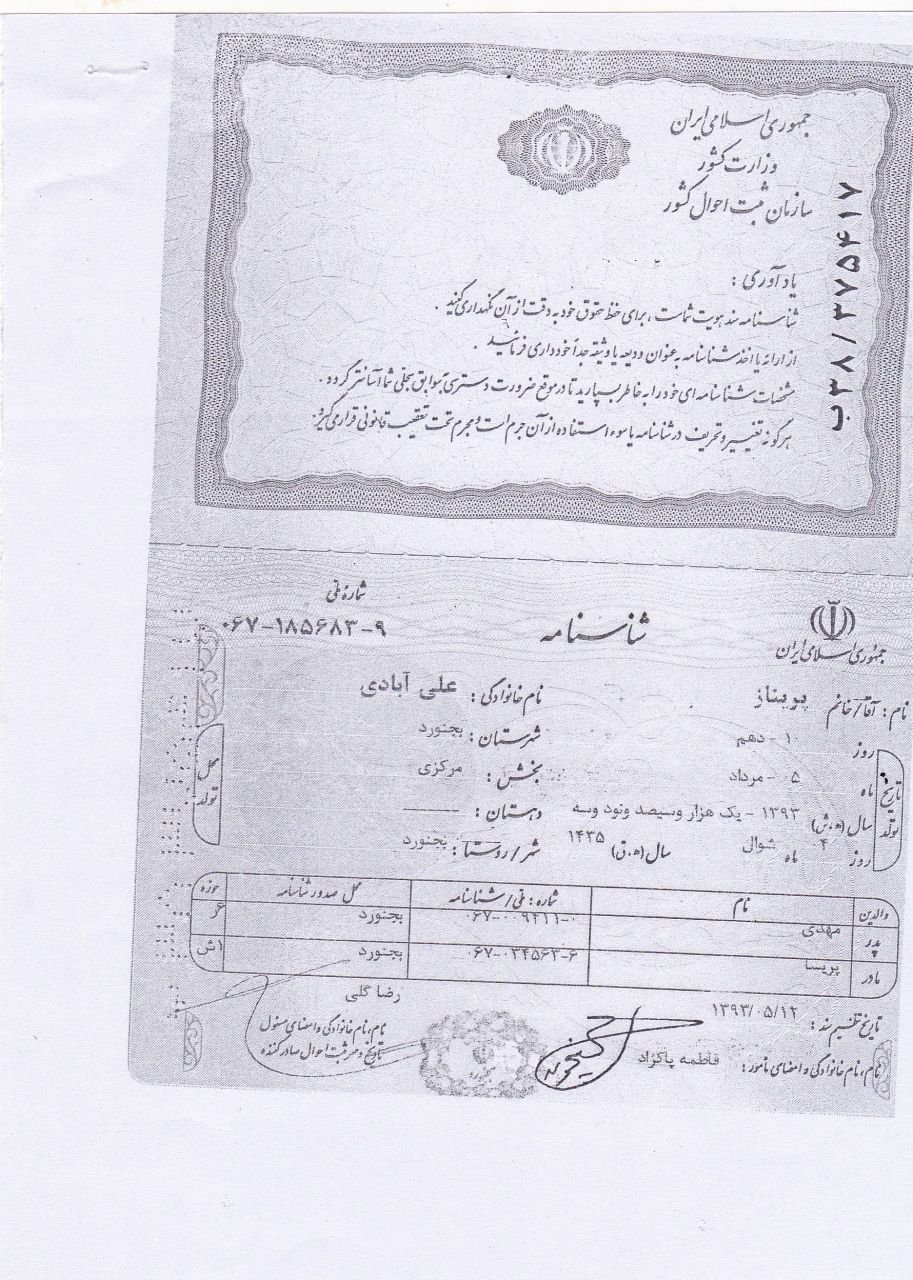 جمهوری اسلامی ایران
وزارت کشور
سازمان ثبت احوال کشور
ب۳۸ / ۳۷۵۴۱۷
یادآوری :
شناسنامه سند هویت شماست ، برای حفظ حقوق خود به دقت از آن نگهداری کنید .
از ارائه یا اخذ شناسنامه به عنوان ودیعه یا وثیقه جداً خودداری فرمائید .
مشخصات شناسنامه ای خود را به خاطر بسپارید تا در موقع ضرورت دسترسی به سوابق سجلی شما آسانتر گردد .
هرگونه تغییر و تحریف در شناسنامه یا سوء استفاده از آن جرم است و مجرم تحت تعقیب قانونی قرار می گیرد .
جمهوری اسلامی ایران
شناسنامه
شمارهٔ ملی
۰۶۷-۱۸۵۶۸۳-۹
نام : آقا/خانم پریناز نام خانوادگی : علی آبادی
تاریخ تولد
روز ۱۰ - دهم
ماه ۰۵ - مرداد
سال (ه.ش) ۱۳۹۳ - یک هزار و سیصد و نود و سه
روز ۴ ماه شوال سال (ه.ق) ۱۴۳۵
محل تولد
شهرستان : بجنورد
بخش : مرکزی
دهستان : ----------
شهر / روستا : بجنورد
والدین نام شماره : ملی / شناسنامه محل صدور شناسنامه حوزه
پدر مهدی ۰۶۷-۰۰۹۴۱۱-۰ بجنورد ۶
مادر پریسا ۰۶۷-۰۳۴۵۶۳-۶ بجنورد ۱ش
تاریخ تنظیم سند : ۱۳۹۳/۰۵/۱۲
نام ، نام خانوادگی و امضای مأمور : فاطمه پاکزاد
رضا گلی
نام ، نام خانوادگی و امضای مسئول
تاریخ و مهر ثبت احوال صادر کننده